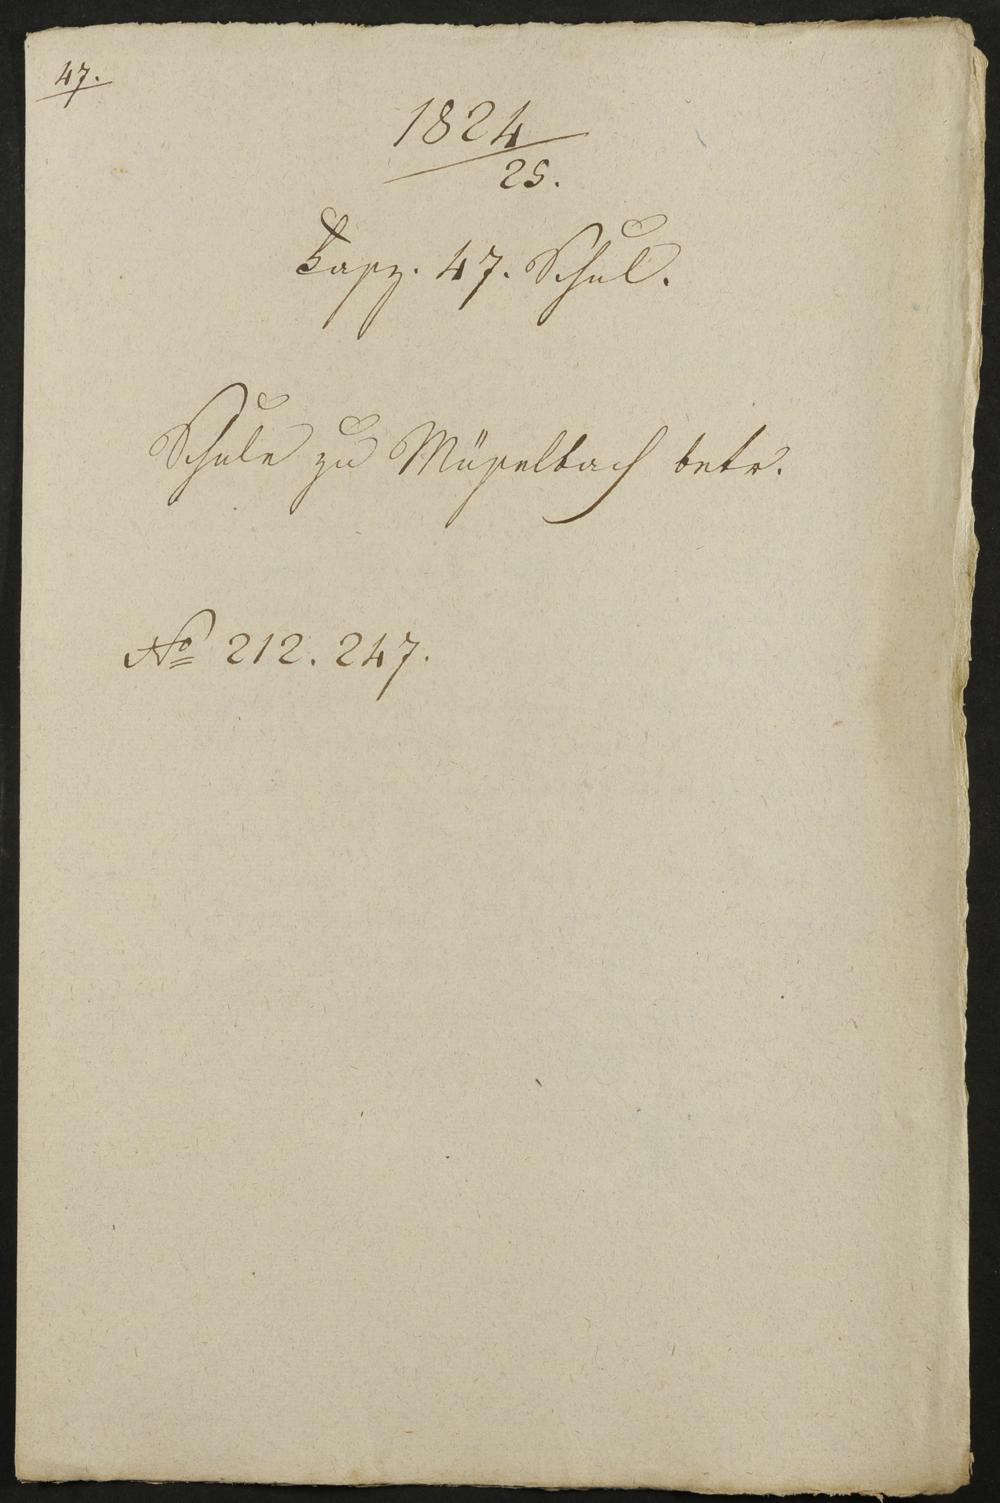 47.
1824
25.
47. Schul.
Schule zu Müselbach betr.
No 212. 247.